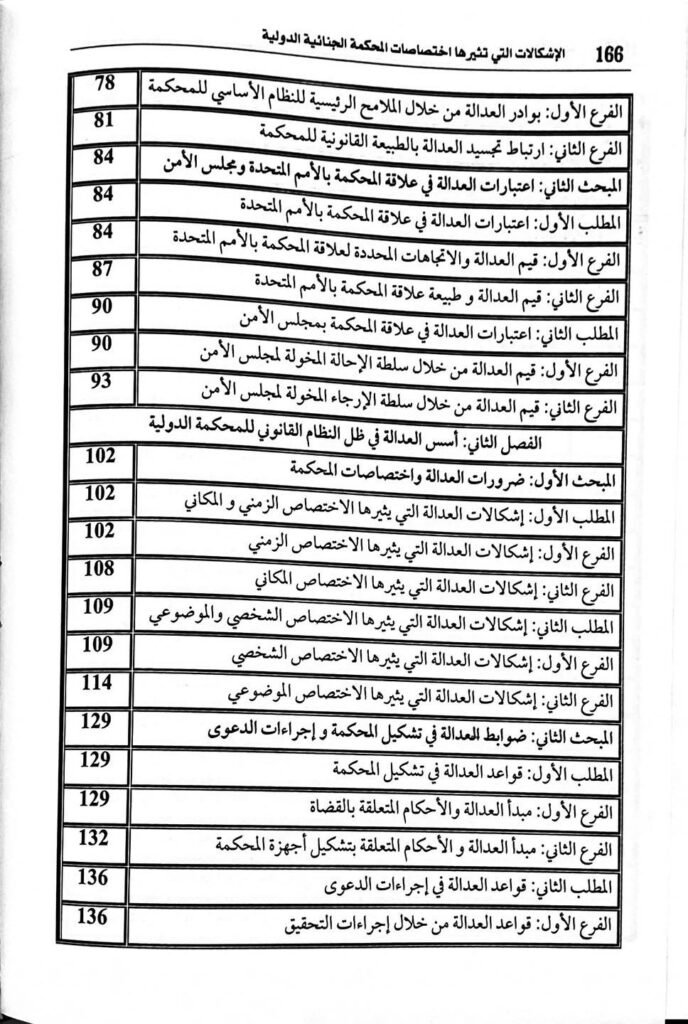 166 الإشكالات التي تثيرها اختصاصات المحكمة الجنائية الدولية
الفرع الأول: بوادر العدالة من خلال الملامح الرئيسية للنظام الأساسي للمحكمة 78
الفرع الثاني: ارتباط تجسيد العدالة بالطبيعة القانونية للمحكمة 81
المبحث الثاني: اعتبارات العدالة في علاقة المحكمة بالأمم المتحدة ومجلس الأمن 84
المطلب الأول: اعتبارات العدالة في علاقة المحكمة بالأمم المتحدة 84
الفرع الأول: قيم العدالة والاتجاهات المحددة لعلاقة المحكمة بالأمم المتحدة 84
الفرع الثاني: قيم العدالة و طبيعة علاقة المحكمة بالأمم المتحدة 87
المطلب الثاني: اعتبارات العدالة في علاقة المحكمة بمجلس الأمن 90
الفرع الأول: قيم العدالة من خلال سلطة الإحالة المخولة لمجلس الأمن 90
الفرع الثاني: قيم العدالة من خلال سلطة الإرجاء المخولة لمجلس الأمن 93
الفصل الثاني: أسس العدالة في ظل النظام القانوني للمحكمة الدولية
المبحث الأول: ضرورات العدالة واختصاصات المحكمة 102
المطلب الأول: إشكالات العدالة التي يثيرها الاختصاص الزمني و المكاني 102
الفرع الأول: إشكالات العدالة التي يثيرها الاختصاص الزمني 102
الفرع الثاني: إشكالات العدالة التي يثيرها الاختصاص المكاني 108
المطلب الثاني: إشكالات العدالة التي يثيرها الاختصاص الشخصي والموضوعي 109
الفرع الأول: إشكالات العدالة التي يثيرها الاختصاص الشخصي 109
الفرع الثاني: إشكالات العدالة التي يثيرها الاختصاص الموضوعي 114
المبحث الثاني: ضوابط العدالة في تشكيل المحكمة و إجراءات الدعوى 129
المطلب الأول: قواعد العدالة في تشكيل المحكمة 129
الفرع الأول: مبدأ العدالة والأحكام المتعلقة بالقضاة 129
الفرع الثاني: مبدأ العدالة و الأحكام المتعلقة بتشكيل أجهزة المحكمة 132
المطلب الثاني: قواعد العدالة في إجراءات الدعوى 136
الفرع الأول: قواعد العدالة من خلال إجراءات التحقيق 136